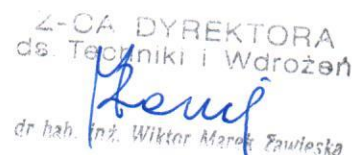 Z-CA DYREKTORA
ds. Techniki i Wdrożeń
dr hab. inż. Wiktor Marek Zawieska